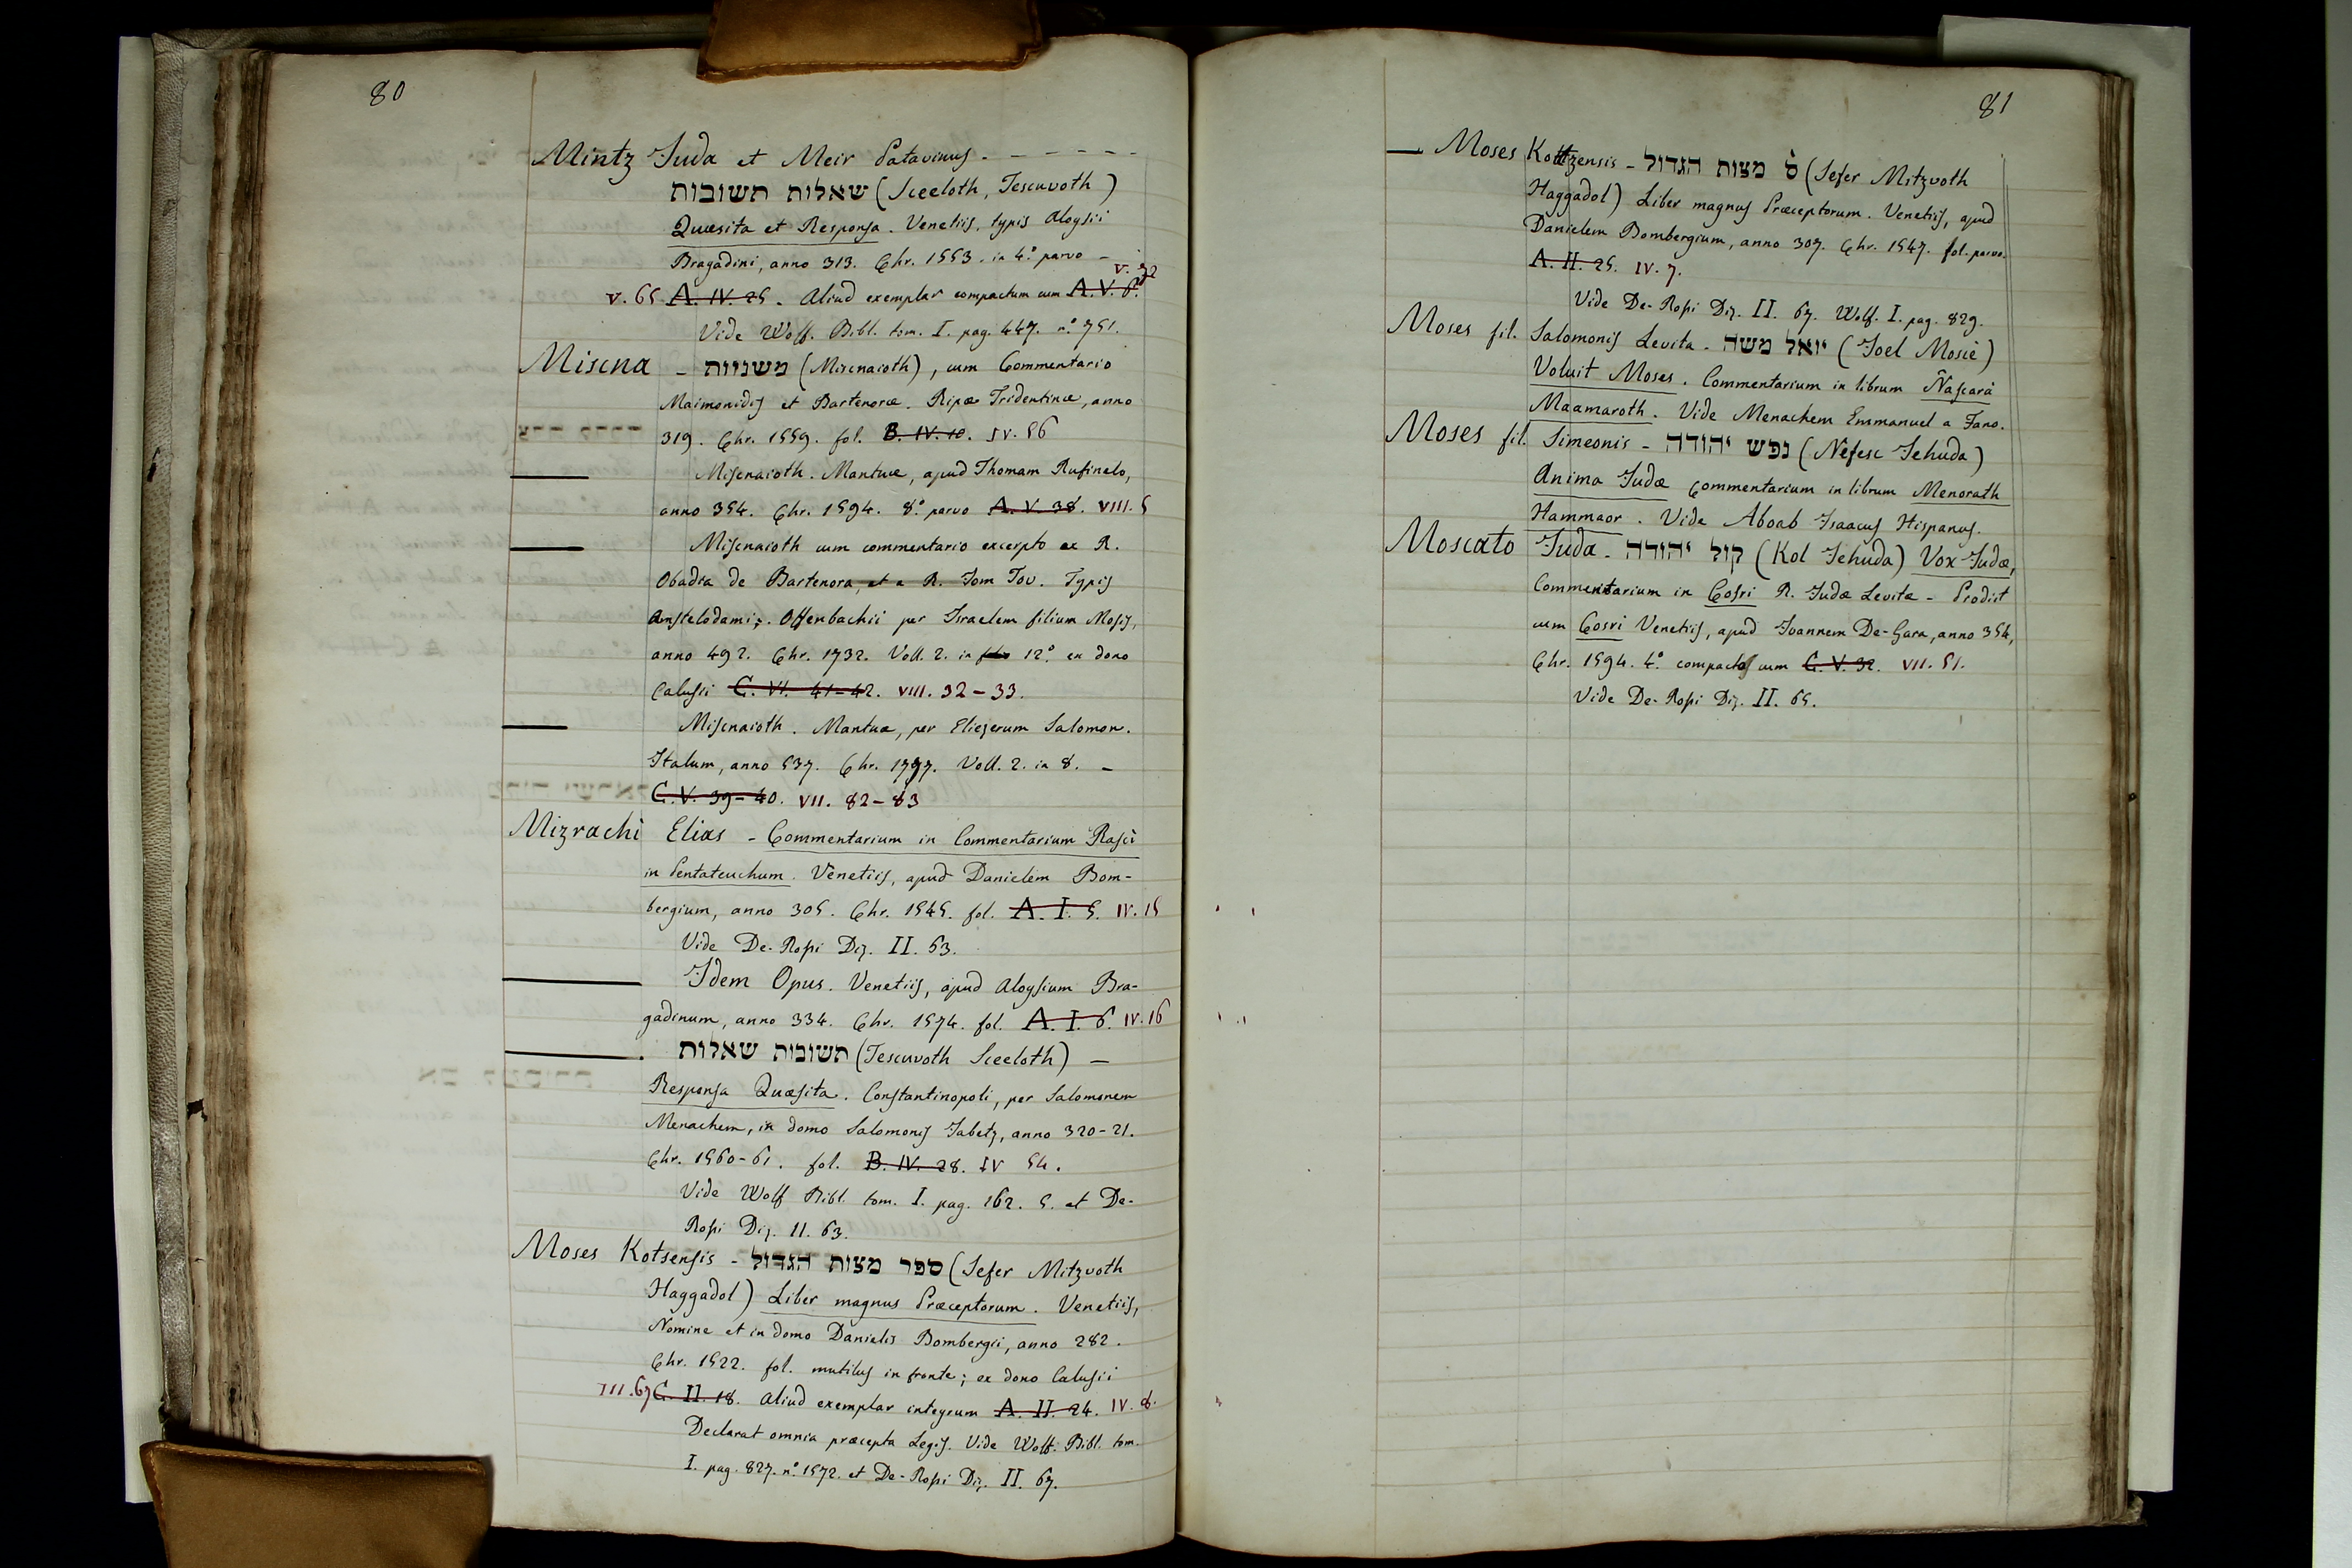 80
Mintz Juda et Meir Patavinus - - - - - -
שאלות תשובות (Sceeloth, Tescuvoth)
Quæsita et Responsa. Venetiis, typis Aloysii
Bragadini, anno 313. Chr. 1553. in 4.° parvo -
V. 72
V. 65 A. IV. 25. Aliud exemplar compactum cum A. V. 6.
Vide Wolf. Bibl. tom. I. pag. 447. n.° 751.
Miscna - משניות (Miscnaioth), cum Commentario
Maimonidis et Bartenoræ. Ripæ Tridentinæ, anno
319. Chr. 1559. fol. B. IV. 10. IV. 56
Miscnaioth. Mantuæ, apud Thomam Rufinelo,
anno 354. Chr. 1594. 8.° parvo A. V. 38. VIII. 5
Miscnaioth cum commentario excerpto ex R.
Obadia de Bartenora, et a R. Jom Tov. Typis
Amstelodami; Offenbachii per Israelem filium Mosis,
anno 492. Chr. 1732. Voll. 2. in 12.° ex dono
Calusii C. VI. 41-42. VIII. 32-33.
Miscnaioth. Mantuæ, per Eliezerum Salomon.
Italum, anno 537. Chr. 1777. Voll. 2. in 8. -
C. V. 39-40. VII. 82-83
Mizrachi Elias - Commentarium in Commentarium Rasci
in Pentateuchum. Venetiis, apud Danielem Bom-
bergium, anno 305. Chr. 1545. fol. A. I. 5. IV. 15
Vide De-Rossi Diz. II. 63.
Idem Opus. Venetiis, apud Aloysium Bra-
gadinum, anno 334. Chr. 1574. fol. A. I. 6. IV. 16
תשובות שאלות (Tescuvoth Sceeloth) -
Responsa Quæsita. Constantinopoli, per Salomonem
Menachem, in domo Salomonis Jabetz, anno 320-21.
Chr. 1560-61. fol. B. IV. 28. IV 54.
Vide Wolf Bibl. tom. I. pag. 162. 5. et De-
Rossi Diz. II. 63.
Moses Kotsensis - ספר מצות הגדול (Sefer Mitzvoth
Haggadol) Liber magnus Præceptorum. Venetiis,
Nomine et in domo Danielis Bombergii, anno 282.
Chr. 1522. fol. mutilus in fronte; ex dono Calusii
III. 67 C. II. 18. Aliud exemplar integrum A. II. 24. IV. 8.
Declarat omnia præcepta Legis. Vide Wolf. Bibl. tom.
I. pag. 827. n.° 1572. et De-Rossi Diz. II. 67.
81
— Moses Kottzensis - ס' מצות הגדול (Sefer Mitzvoth
Haggadol) Liber magnus Præceptorum. Venetiis, apud
Danielem Bombergium, anno 307. Chr. 1547. fol. parvo.
A. II. 25. IV. 7.
Vide De-Rossi Diz. II. 67. Wolf. I. pag. 829.
Moses fil. Salomonis Levita - יואל משה (Joel Moscè)
Voluit Moses. Commentarium in librum Nascarà
Maamaroth. Vide Menachem Emmanuel a Fano.
Moses fil. Simeonis - נפש יהודה (Nefesc Jehuda)
Anima Judæ Commentarium in librum Menorath
Hammaor. Vide Aboab Isaacus Hispanus.
Moscato Juda - קול יהודה (Kol Jehuda) Vox Judæ,
Commentarium in Cosri R. Judæ Levitæ - Prodiit
cum Cosri Venetiis, apud Joannem De-Gara, anno 354,
Chr. 1594. 4.° compactus cum C. V. 32. VII. 51.
Vide De-Rossi Diz. II. 65.